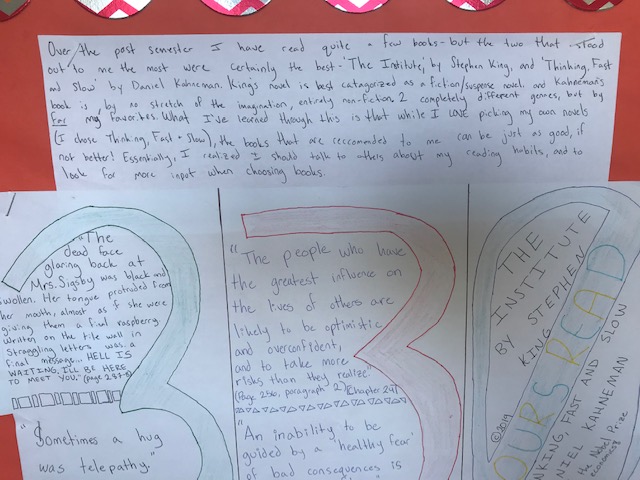 Over the past semester I have read quite a few books - but the two that stood
out to me the most were certainly the best - 'The Institute', by Stephen King, and 'Thinking, Fast
and Slow' by Daniel Kahneman. King's novel is best catagorized as a fiction/suspense novel, and Kahneman's
book is, by no stretch of the imagination, entirely non-fiction. 2 completely different genres, but by
far my favorites. What I've learned through this is that while I LOVE picking my own novels
(I chose Thinking, Fast + Slow), the books that are reccomended to me can be just as good, if
not better! Essentially, I realized I should talk to others about my reading habits, and to
look for more input when choosing books.
"The
dead face
glaring back at
Mrs. Sigsby was black and
swollen. Her tongue protruded from
her mouth, almost as if she were
giving them a final raspberry.
Written on the tile wall in
straggling letters was a
final message... HELL IS
WAITING. I'LL BE HERE
TO MEET YOU." (page
"Sometimes a hug
was telepathy."
"The people who have
the greatest influence on
the lives of others are
likely to be optimistic
and overconfident,
and to take more
risks than they realize."
(Page 256, paragraph 2) (Chapter 24)
"An inability to be
guided by a 'healthy fear'
of bad consequences is
THE
INSTITUTE
BY STEPHEN
KING
©2019
OURS READ
NKING, FAST AND SLOW
NIEL KAHNEMAN
the Nobel Prize
economics